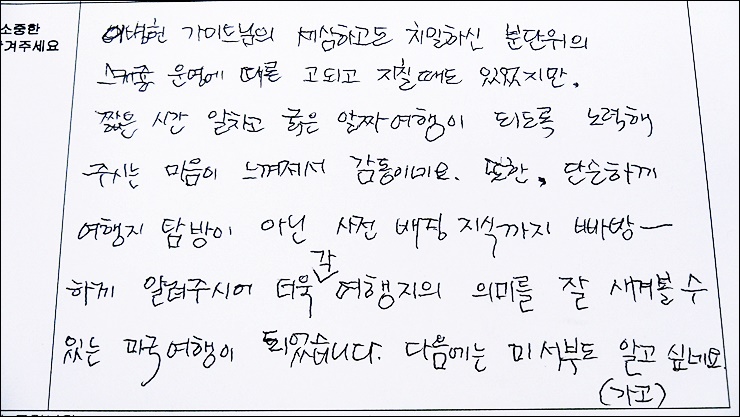 소중한
겨주세요
이병헌 가이드님의 세심하고도 치밀하신 분단위의
스케쥴 운영에 따른 고되고 지칠때도 있었지만,
짧은 시간 알차고 굵은 알짜여행이 되도록 노력해
주시는 마음이 느껴져서 감동이예요. 또한, 단순하게
여행지 탐방이 아닌 사전 배경 지식까지 빠방-
하게 알려주시어 더욱 각 여행지의 의미를 잘 새겨볼 수
있는 미국여행이 되었습니다. 다음에는 미서부도 알고 싶네요
(가고)